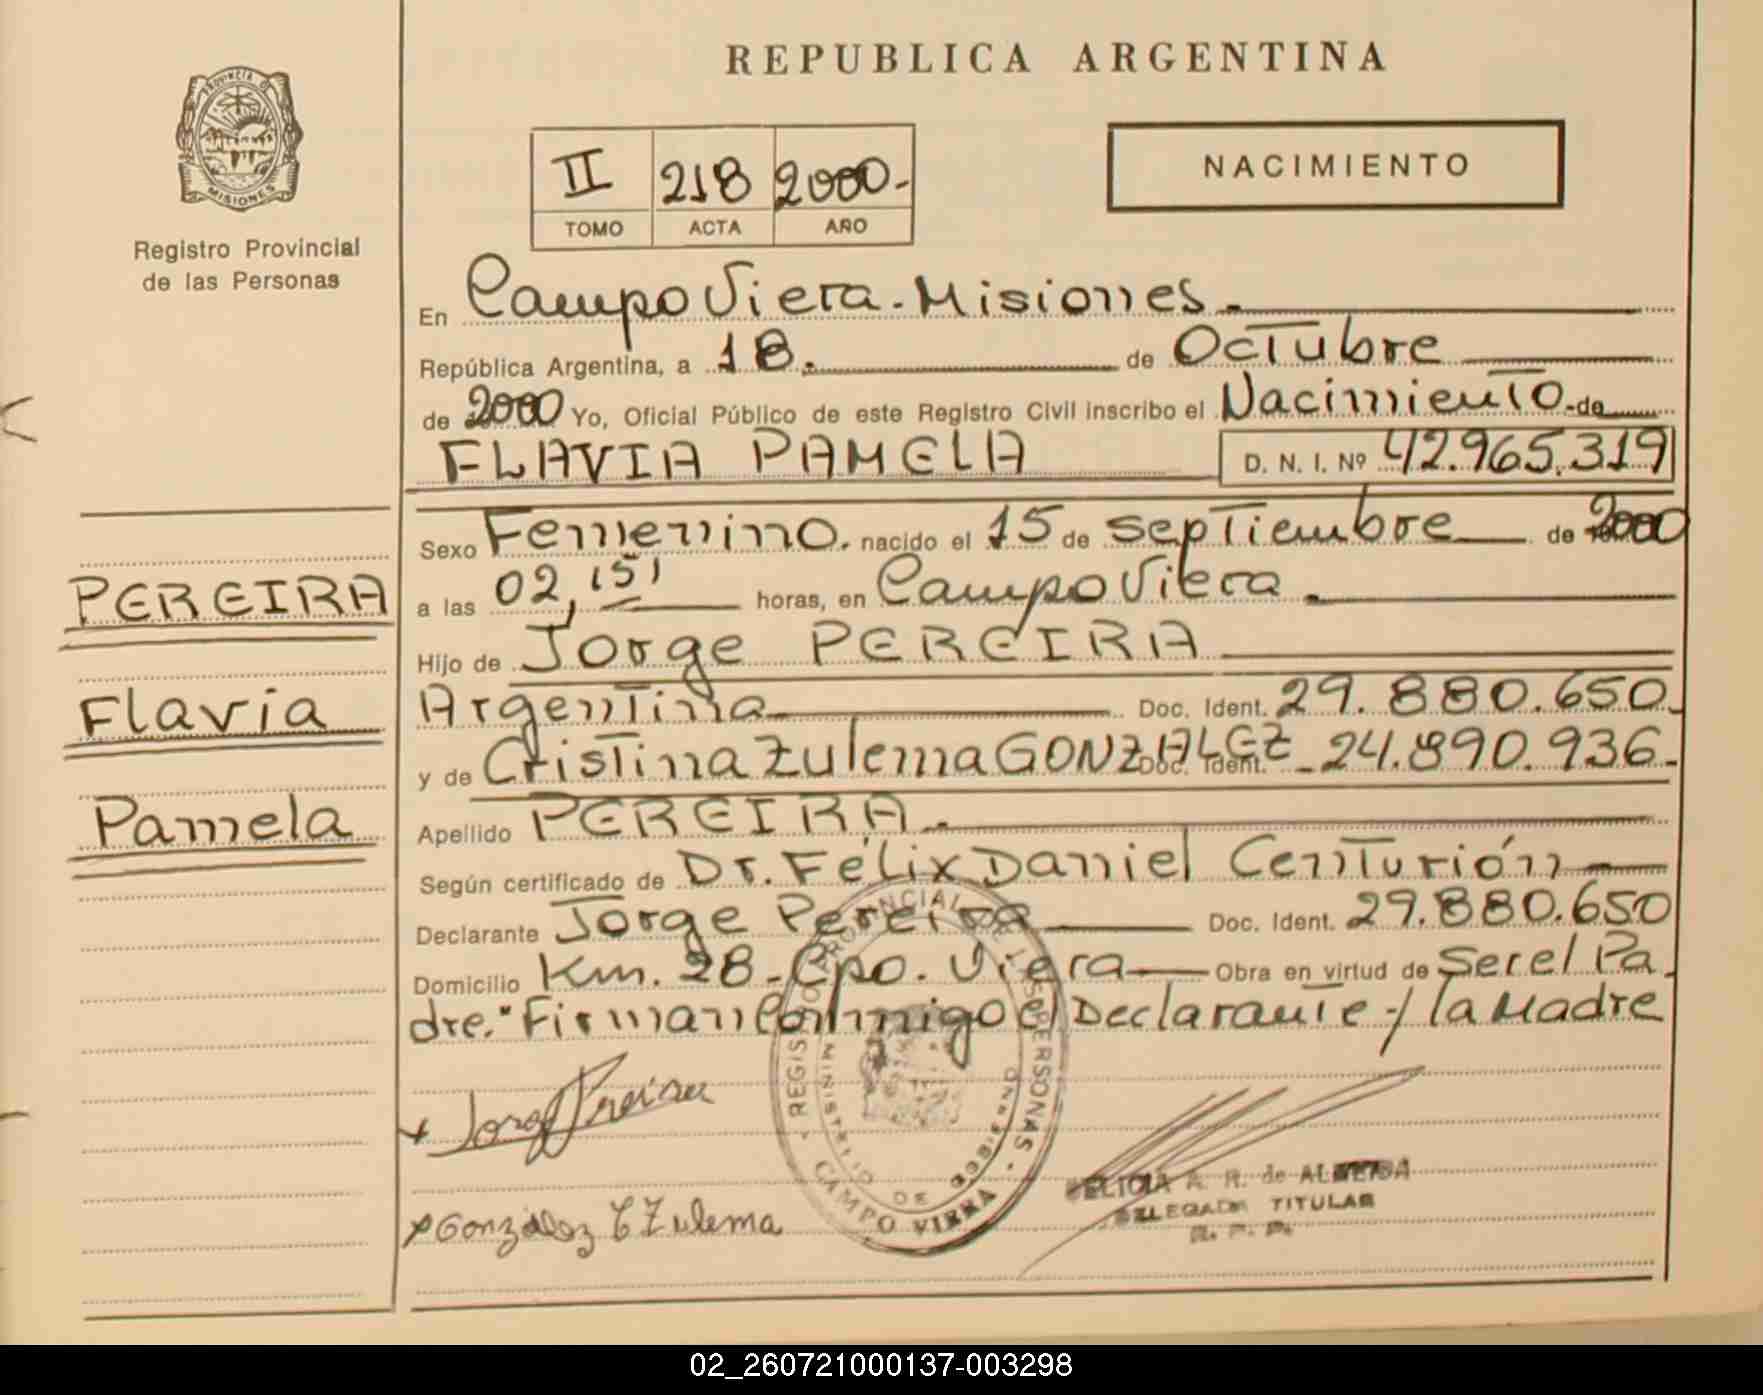 PROVINCIA DE
MISIONES
Registro Provincial
de las Personas
REPUBLICA ARGENTINA
II 218 2000.-
TOMO ACTA AÑO
NACIMIENTO
En Campo Viera.-Misiones.-
República Argentina, a 18. de Octubre
de 2000 Yo, Oficial Público de este Registro Civil inscribo el Nacimiento.de
FLAVIA PAMELA D. N. I. Nº 42.965.319
Sexo Femenino. nacido el 15 de septiembre de 2000
a las 02,15' horas, en Campo Viera.
Hijo de Jorge PEREIRA
Argentina Doc. Ident. 29.880.650.
y de Cristina Zulema GONZALEZ Doc. Ident. 24.890.936.
Apellido PEREIRA.
Según certificado de Dr. Félix Daniel Centurión
Declarante Jorge Pereira Doc. Ident. 29.880.650
Domicilio Km. 28-Cpo. Viera Obra en virtud de ser el Pa
dre." Firman Conmigo el Declarante-/ la Madre
PEREIRA
Flavia
Pamela
x Jorge Pereira
x González C Zulema
REGISTRO PROVINCIAL DE LAS PERSONAS
MINISTERIO DE
CAMPO VIERA
A. R. de ALMEIDA
DELEGADA TITULAR
R. P. P.
02_260721000137-003298